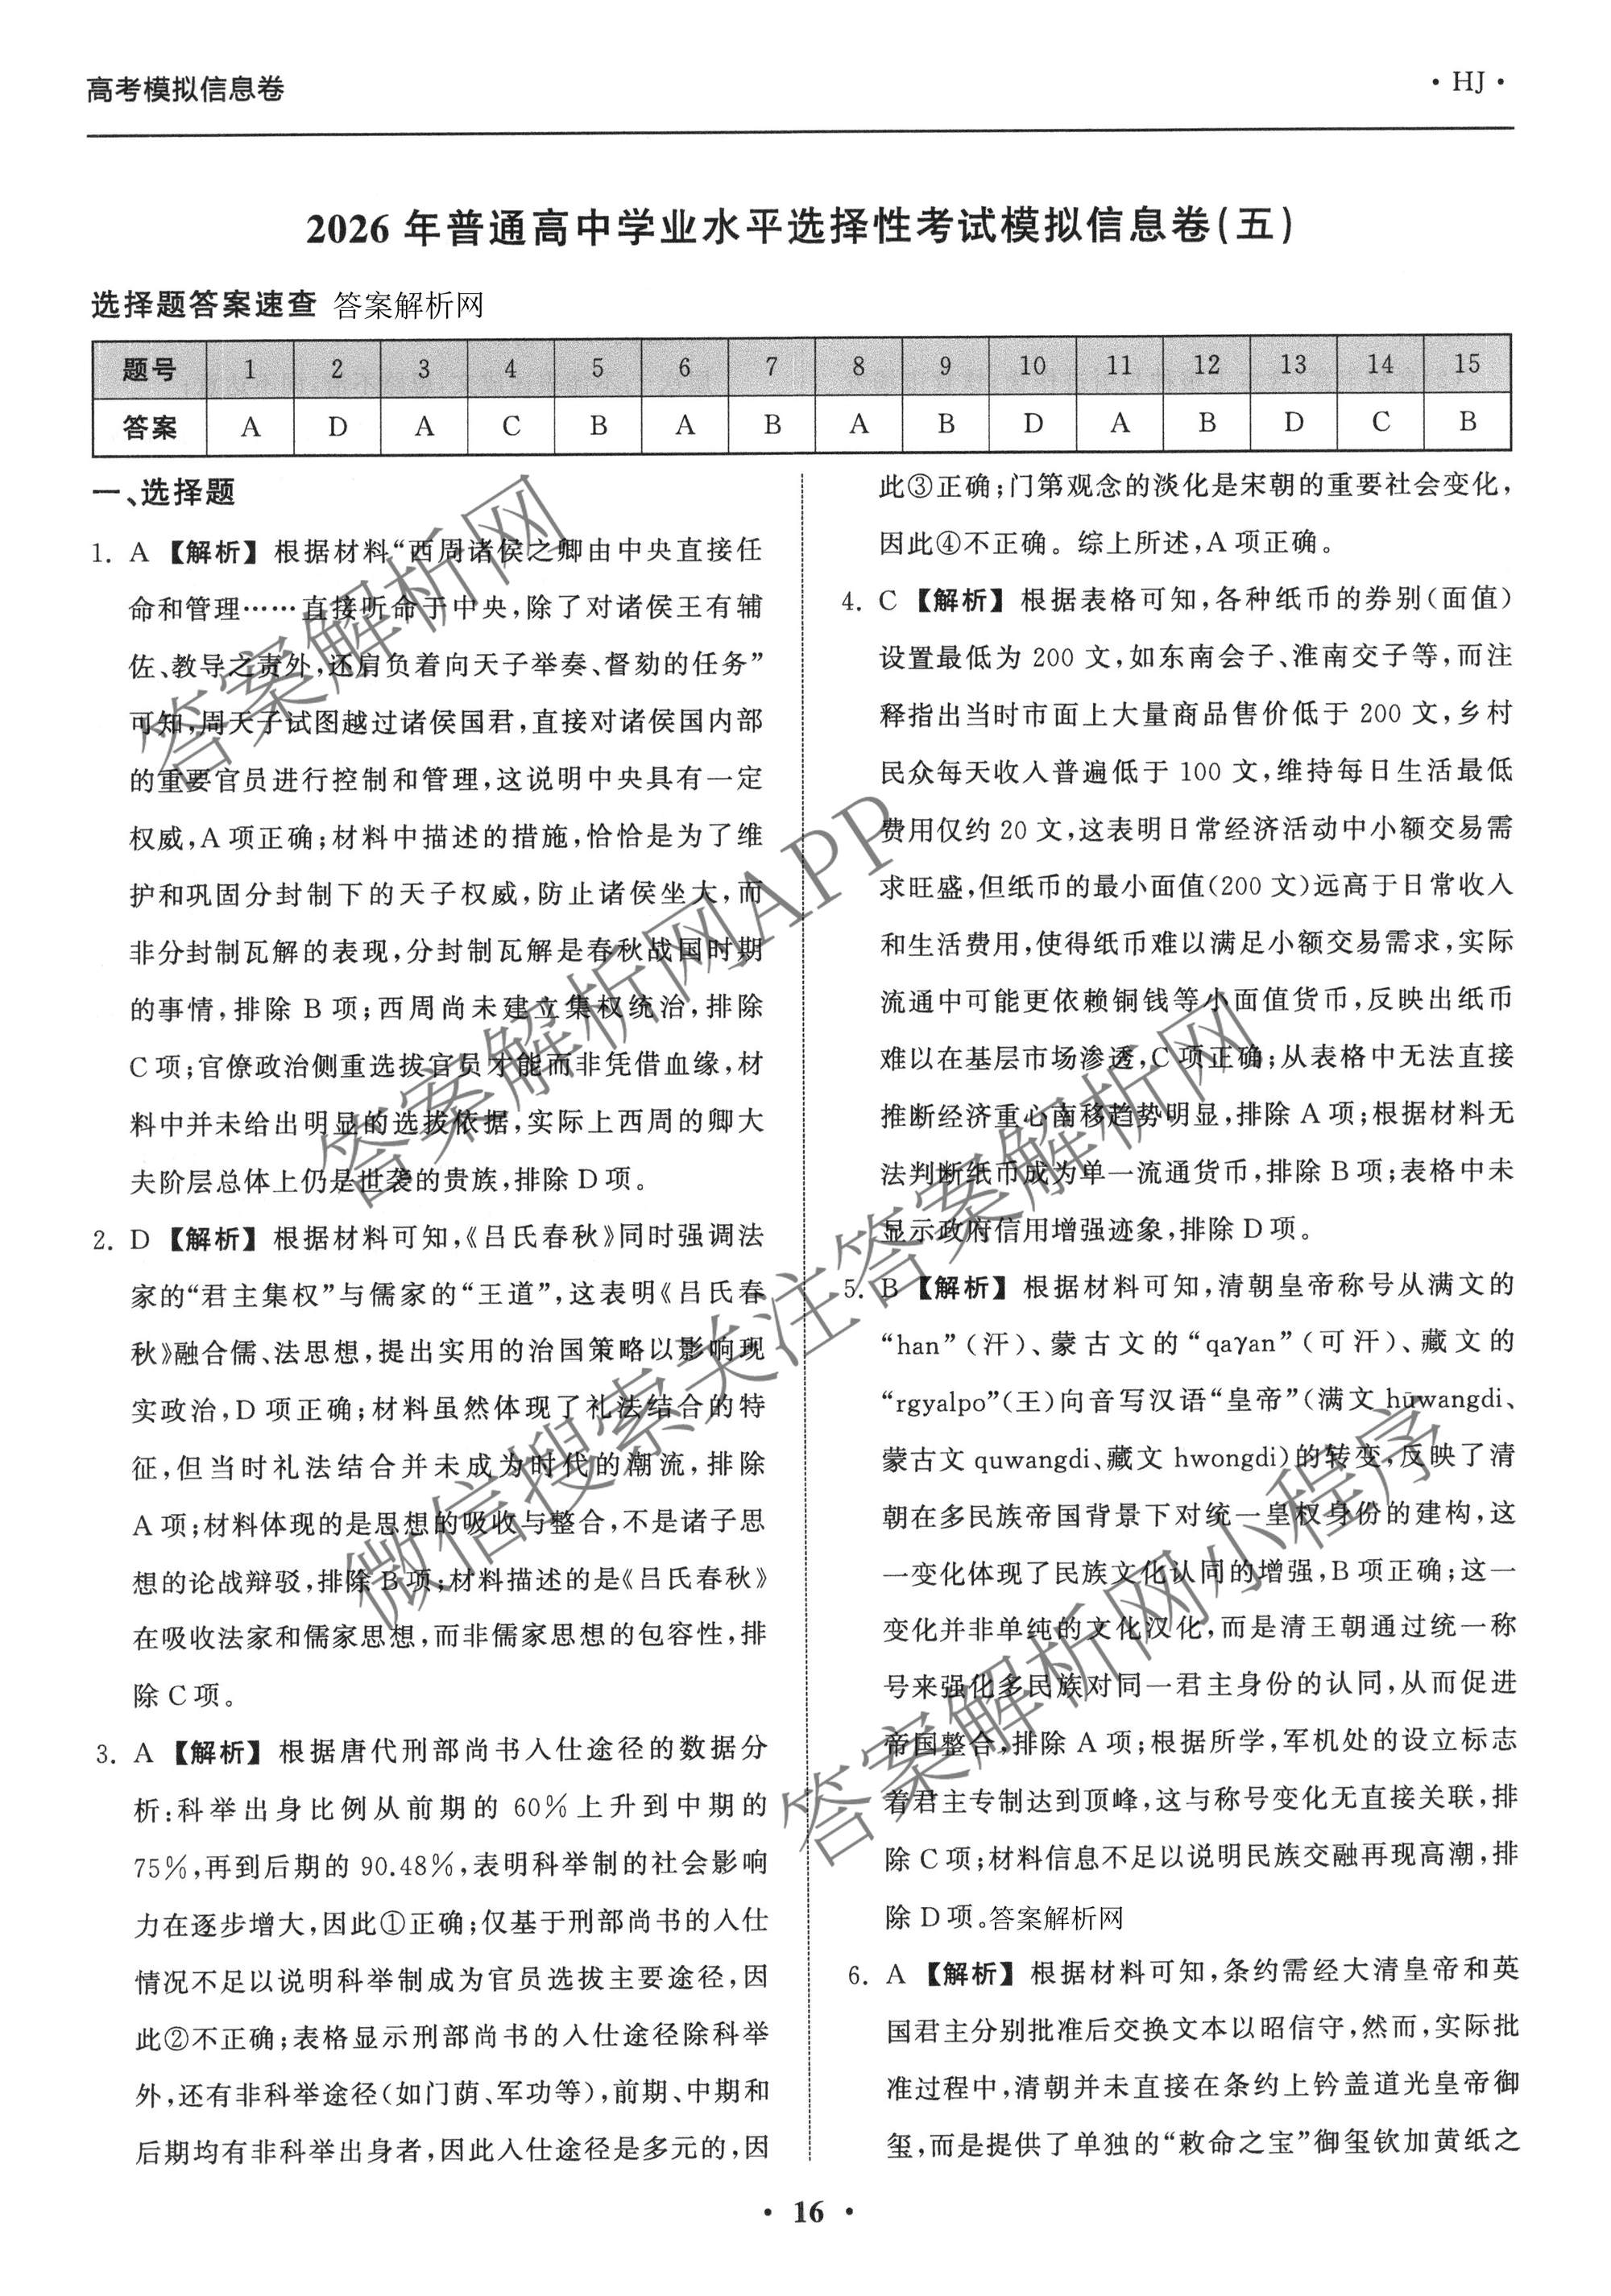 高考模拟信息卷
·HJ·
2026年普通高中学业水平选择性考试模拟信息卷(五)
选择题答案速查 答案解析网
题号 1 2 3 4 5 6 7 8 9 10 11 12 13 14 15
答案 A D A C B A B A B D A B D C B
一、选择题
1. A 【解析】根据材料“西周诸侯之卿由中央直接任
命和管理……直接听命于中央,除了对诸侯王有辅
佐、教导之责外,还肩负着向天子举奏、督劾的任务”
可知,周天子试图越过诸侯国君,直接对诸侯国内部
的重要官员进行控制和管理,这说明中央具有一定
权威,A项正确;材料中描述的措施,恰恰是为了维
护和巩固分封制下的天子权威,防止诸侯坐大,而
非分封制瓦解的表现,分封制瓦解是春秋战国时期
的事情,排除B项;西周尚未建立集权统治,排除
C项;官僚政治侧重选拔官员才能而非凭借血缘,材
料中并未给出明显的选拔依据,实际上西周的卿大
夫阶层总体上仍是世袭的贵族,排除D项。
2. D 【解析】根据材料可知,《吕氏春秋》同时强调法
家的“君主集权”与儒家的“王道”,这表明《吕氏春
秋》融合儒、法思想,提出实用的治国策略以影响现
实政治,D项正确;材料虽然体现了礼法结合的特
征,但当时礼法结合并未成为时代的潮流,排除
A项;材料体现的是思想的吸收与整合,不是诸子思
想的论战辩驳,排除B项;材料描述的是《吕氏春秋》
在吸收法家和儒家思想,而非儒家思想的包容性,排
除C项。
3. A 【解析】根据唐代刑部尚书入仕途径的数据分
析:科举出身比例从前期的60%上升到中期的
75%,再到后期的90.48%,表明科举制的社会影响
力在逐步增大,因此①正确;仅基于刑部尚书的入仕
情况不足以说明科举制成为官员选拔主要途径,因
此②不正确;表格显示刑部尚书的入仕途径除科举
外,还有非科举途径(如门荫、军功等),前期、中期和
后期均有非科举出身者,因此入仕途径是多元的,因
此③正确;门第观念的淡化是宋朝的重要社会变化,
因此④不正确。综上所述,A项正确。
4. C 【解析】根据表格可知,各种纸币的券别(面值)
设置最低为200文,如东南会子、淮南交子等,而注
释指出当时市面上大量商品售价低于200文,乡村
民众每天收入普遍低于100文,维持每日生活最低
费用仅约20文,这表明日常经济活动中小额交易需
求旺盛,但纸币的最小面值(200文)远高于日常收入
和生活费用,使得纸币难以满足小额交易需求,实际
流通中可能更依赖铜钱等小面值货币,反映出纸币
难以在基层市场渗透,C项正确;从表格中无法直接
推断经济重心南移趋势明显,排除A项;根据材料无
法判断纸币成为单一流通货币,排除B项;表格中未
显示政府信用增强迹象,排除D项。
5. B 【解析】根据材料可知,清朝皇帝称号从满文的
“han”(汗)、蒙古文的“qaγan”(可汗)、藏文的
“rgyalpo”(王)向音写汉语“皇帝”(满文hūwangdi、
蒙古文quwangdi、藏文hwongdi)的转变,反映了清
朝在多民族帝国背景下对统一皇权身份的建构,这
一变化体现了民族文化认同的增强,B项正确;这一
变化并非单纯的文化汉化,而是清王朝通过统一称
号来强化多民族对同一君主身份的认同,从而促进
帝国整合,排除A项;根据所学,军机处的设立标志
着君主专制达到顶峰,这与称号变化无直接关联,排
除C项;材料信息不足以说明民族交融再现高潮,排
除D项。答案解析网
6. A 【解析】根据材料可知,条约需经大清皇帝和英
国君主分别批准后交换文本以昭信守,然而,实际批
准过程中,清朝并未直接在条约上钤盖道光皇帝御
玺,而是提供了单独的“敕命之宝”御玺钦加黄纸之
·16·
答案解析网
答案解析网APP
微信搜索关注答案解析网
答案解析网小程序